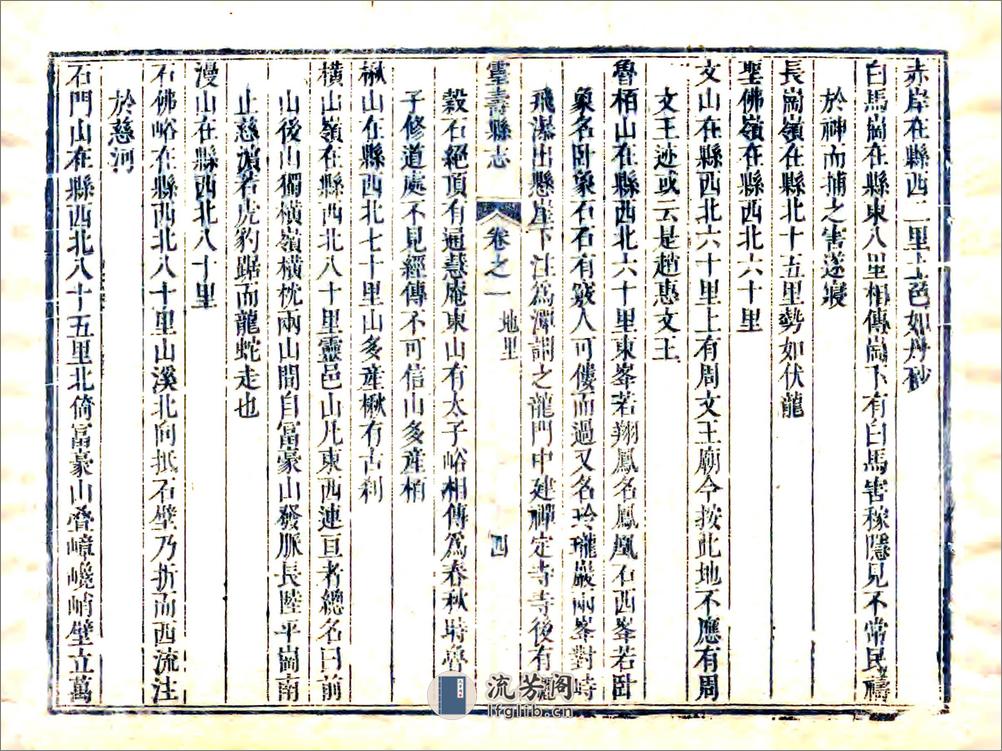 赤岸在縣西二里土色如丹砂
白馬崗在縣東八里相傳崗下有白馬害稼隱見不常民禱
於神而捕之害遂寢
長崗嶺在縣北十五里勢如伏龍
聖佛嶺在縣西北六十里
文山在縣西北六十里上有周文王廟今按此地不應有周
文王迹或云是趙惠文王
魯柏山在縣西北六十里東峯若翔鳳名鳳凰石西峯若卧
象名卧象石石有竅人可僂而過又名玲瓏巖兩峯對峙
飛瀑出懸崖下注為潭謂之龍門中建禪定寺寺後有
靈壽縣志 卷之一 地里 四
穀石絕頂有通慧庵東山有太子峪相傳為春秋時魯
子修道處不見經傳不可信山多産柏
楸山在縣西北七十里山多産楸有古刹
橫山嶺在縣西北八十里靈邑山凡東西連亘者總名曰前
山後山獨橫嶺橫枕兩山間自富豪山發脈長陸平崗南
止慈濱若虎豹踞而龍蛇走也
漫山在縣西北八十里
石佛峪在縣西北八十里山溪北向抵石壁乃折而西流注
於慈河
石門山在縣西北八十五里北倚富豪山疊嶂巉峭壁立萬
流芳阁
lfglib.cn